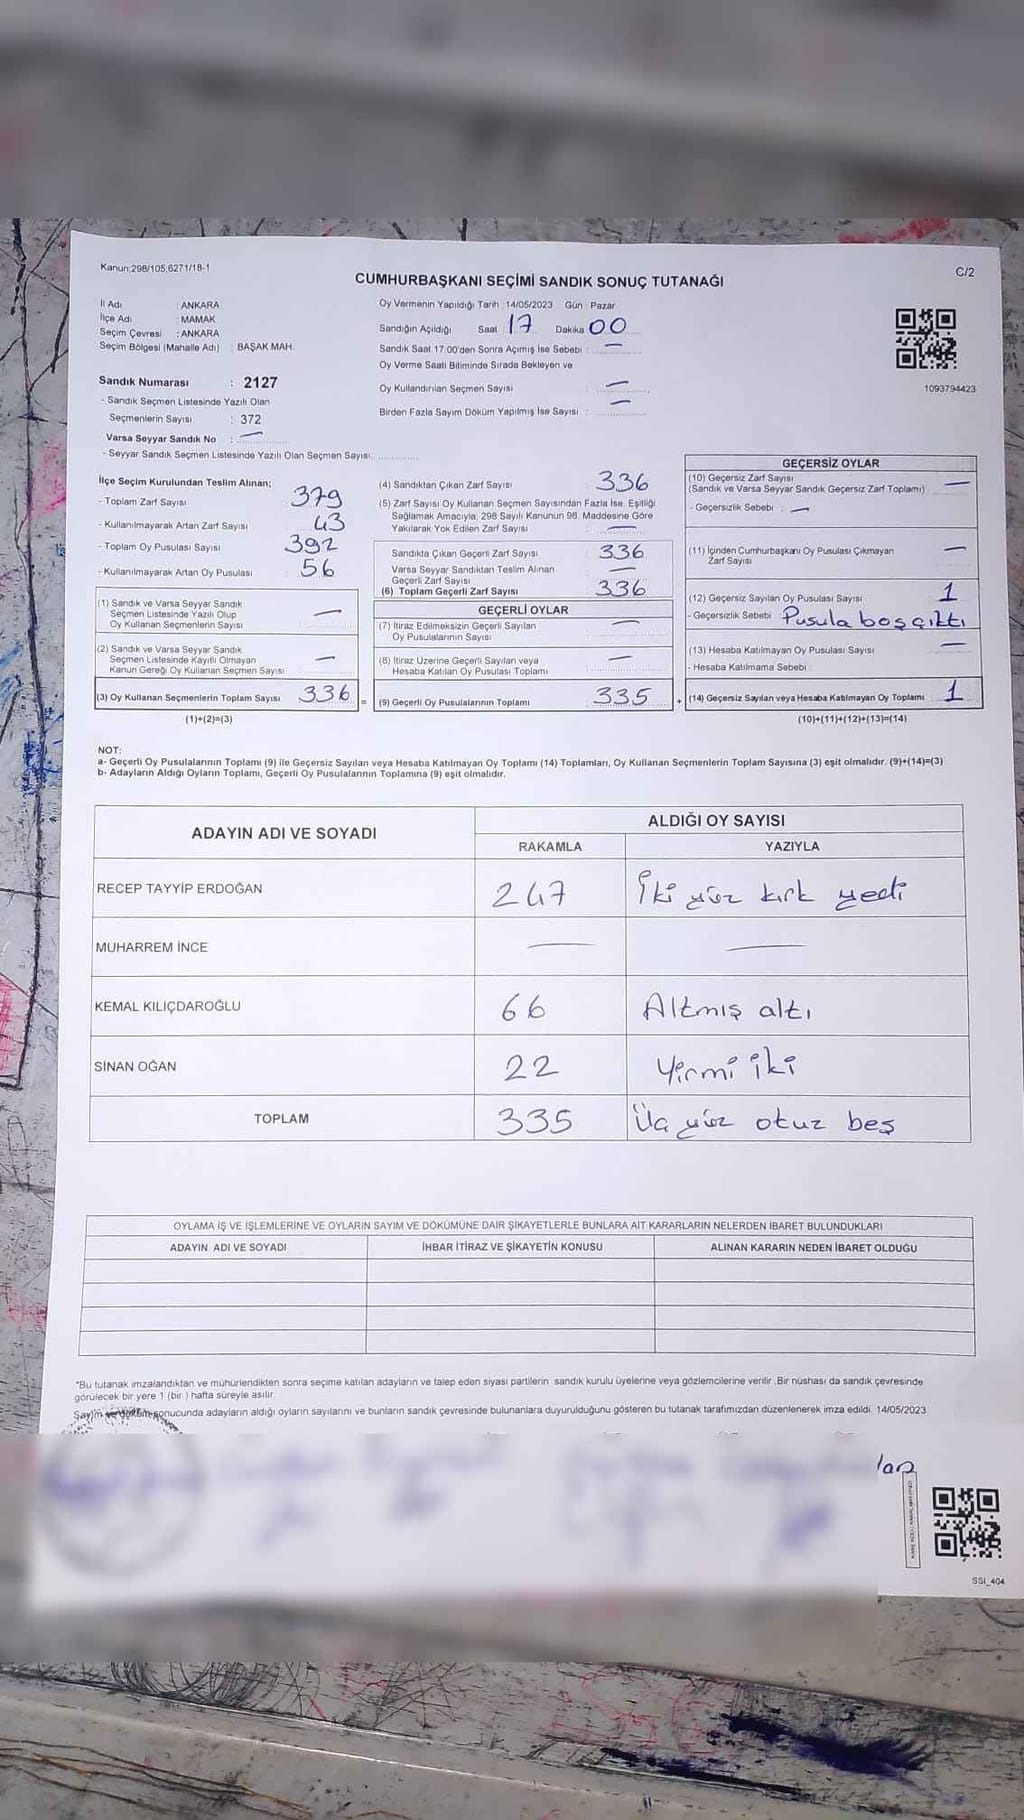 Kanun;298/105,6271/18-1
C/2
CUMHURBAŞKANI SEÇİMİ SANDIK SONUÇ TUTANAĞI
İl Adı : ANKARA
İlçe Adı : MAMAK
Seçim Çevresi : ANKARA
Seçim Bölgesi (Mahalle Adı) : BAŞAK MAH.
Oy Vermenin Yapıldığı Tarih : 14/05/2023 Gün : Pazar
Sandığın Açıldığı Saat : 17 Dakika 00
Sandık Saat 17:00'den Sonra Açımış İse Sebebi : —
Oy Verme Saati Bitiminde Sırada Bekleyen ve
Oy Kullandırılan Seçmen Sayısı —
Birden Fazla Sayım Döküm Yapılmış İse Sayısı : —
1093794423
Sandık Numarası : 2127
- Sandık Seçmen Listesinde Yazılı Olan
Seçmenlerin Sayısı : 372
Varsa Seyyar Sandık No : —
- Seyyar Sandık Seçmen Listesinde Yazılı Olan Seçmen Sayısı:
İlçe Seçim Kurulundan Teslim Alınan;
- Toplam Zarf Sayısı 379
- Kullanılmayarak Artan Zarf Sayısı 43
- Toplam Oy Pusulası Sayısı 392
- Kullanılmayarak Artan Oy Pusulası 56
(1) Sandık ve Varsa Seyyar Sandık
Seçmen Listesinde Yazılı Olup
Oy Kullanan Seçmenlerin Sayısı —
(2) Sandık ve Varsa Seyyar Sandık
Seçmen Listesinde Kayıtlı Olmayan
Kanun Gereği Oy Kullanan Seçmen Sayısı —
(3) Oy Kullanan Seçmenlerin Toplam Sayısı 336 =
(1)+(2)=(3)
(4) Sandıktan Çıkan Zarf Sayısı 336
(5) Zarf Sayısı Oy Kullanan Seçmen Sayısından Fazla İse, Eşitliği
Sağlamak Amacıyla, 298 Sayılı Kanunun 98. Maddesine Göre
Yakılarak Yok Edilen Zarf Sayısı —
Sandıkta Çıkan Geçerli Zarf Sayısı 336
Varsa Seyyar Sandıktan Teslim Alınan
Geçerli Zarf Sayısı —
(6) Toplam Geçerli Zarf Sayısı 336
GEÇERLİ OYLAR
(7) İtiraz Edilmeksizin Geçerli Sayılan
Oy Pusulalarının Sayısı —
(8) İtiraz Üzerine Geçerli Sayılan veya
Hesaba Katılan Oy Pusulası Toplamı —
(9) Geçerli Oy Pusulalarının Toplamı 335 +
GEÇERSİZ OYLAR
(10) Geçersiz Zarf Sayısı
(Sandık ve Varsa Seyyar Sandık Geçersiz Zarf Toplamı) —
- Geçersizlik Sebebi : —
(11) İçinden Cumhurbaşkanı Oy Pusulası Çıkmayan
Zarf Sayısı —
(12) Geçersiz Sayılan Oy Pusulası Sayısı 1
- Geçersizlik Sebebi : Pusula boş çıktı
(13) Hesaba Katılmayan Oy Pusulası Sayısı —
- Hesaba Katılmama Sebebi :
(14) Geçersiz Sayılan veya Hesaba Katılmayan Oy Toplamı 1
(10)+(11)+(12)+(13)=(14)
NOT:
a- Geçerli Oy Pusulalarının Toplamı (9) ile Geçersiz Sayılan veya Hesaba Katılmayan Oy Toplamı (14) Toplamları, Oy Kullanan Seçmenlerin Toplam Sayısına (3) eşit olmalıdır. (9)+(14)=(3)
b- Adayların Aldığı Oyların Toplamı, Geçerli Oy Pusulalarının Toplamına (9) eşit olmalıdır.
ADAYIN ADI VE SOYADI ALDIĞI OY SAYISI
RAKAMLA YAZIYLA
RECEP TAYYİP ERDOĞAN 247 İki yüz kırk yedi
MUHARREM İNCE — —
KEMAL KILIÇDAROĞLU 66 Altmış altı
SİNAN OĞAN 22 Yirmi iki
TOPLAM 335 Üç yüz otuz beş
OYLAMA İŞ VE İŞLEMLERİNE VE OYLARIN SAYIM VE DÖKÜMÜNE DAİR ŞİKAYETLERLE BUNLARA AİT KARARLARIN NELERDEN İBARET BULUNDUKLARI
ADAYIN ADI VE SOYADI İHBAR İTİRAZ VE ŞİKAYETİN KONUSU ALINAN KARARIN NEDEN İBARET OLDUĞU
*Bu tutanak imzalandıktan ve mühürlendikten sonra seçime katılan adayların ve talep eden siyasi partilerin sandık kurulu üyelerine veya gözlemcilerine verilir. Bir nüshası da sandık çevresinde
görülecek bir yere 1 (bir ) hafta süreyle asılır.
Sayım ve döküm sonucunda adayların aldığı oyların sayılarını ve bunların sandık çevresinde bulunanlara duyurulduğunu gösteren bu tutanak tarafımızdan düzenlenerek imza edildi. 14/05/2023
SSI_404